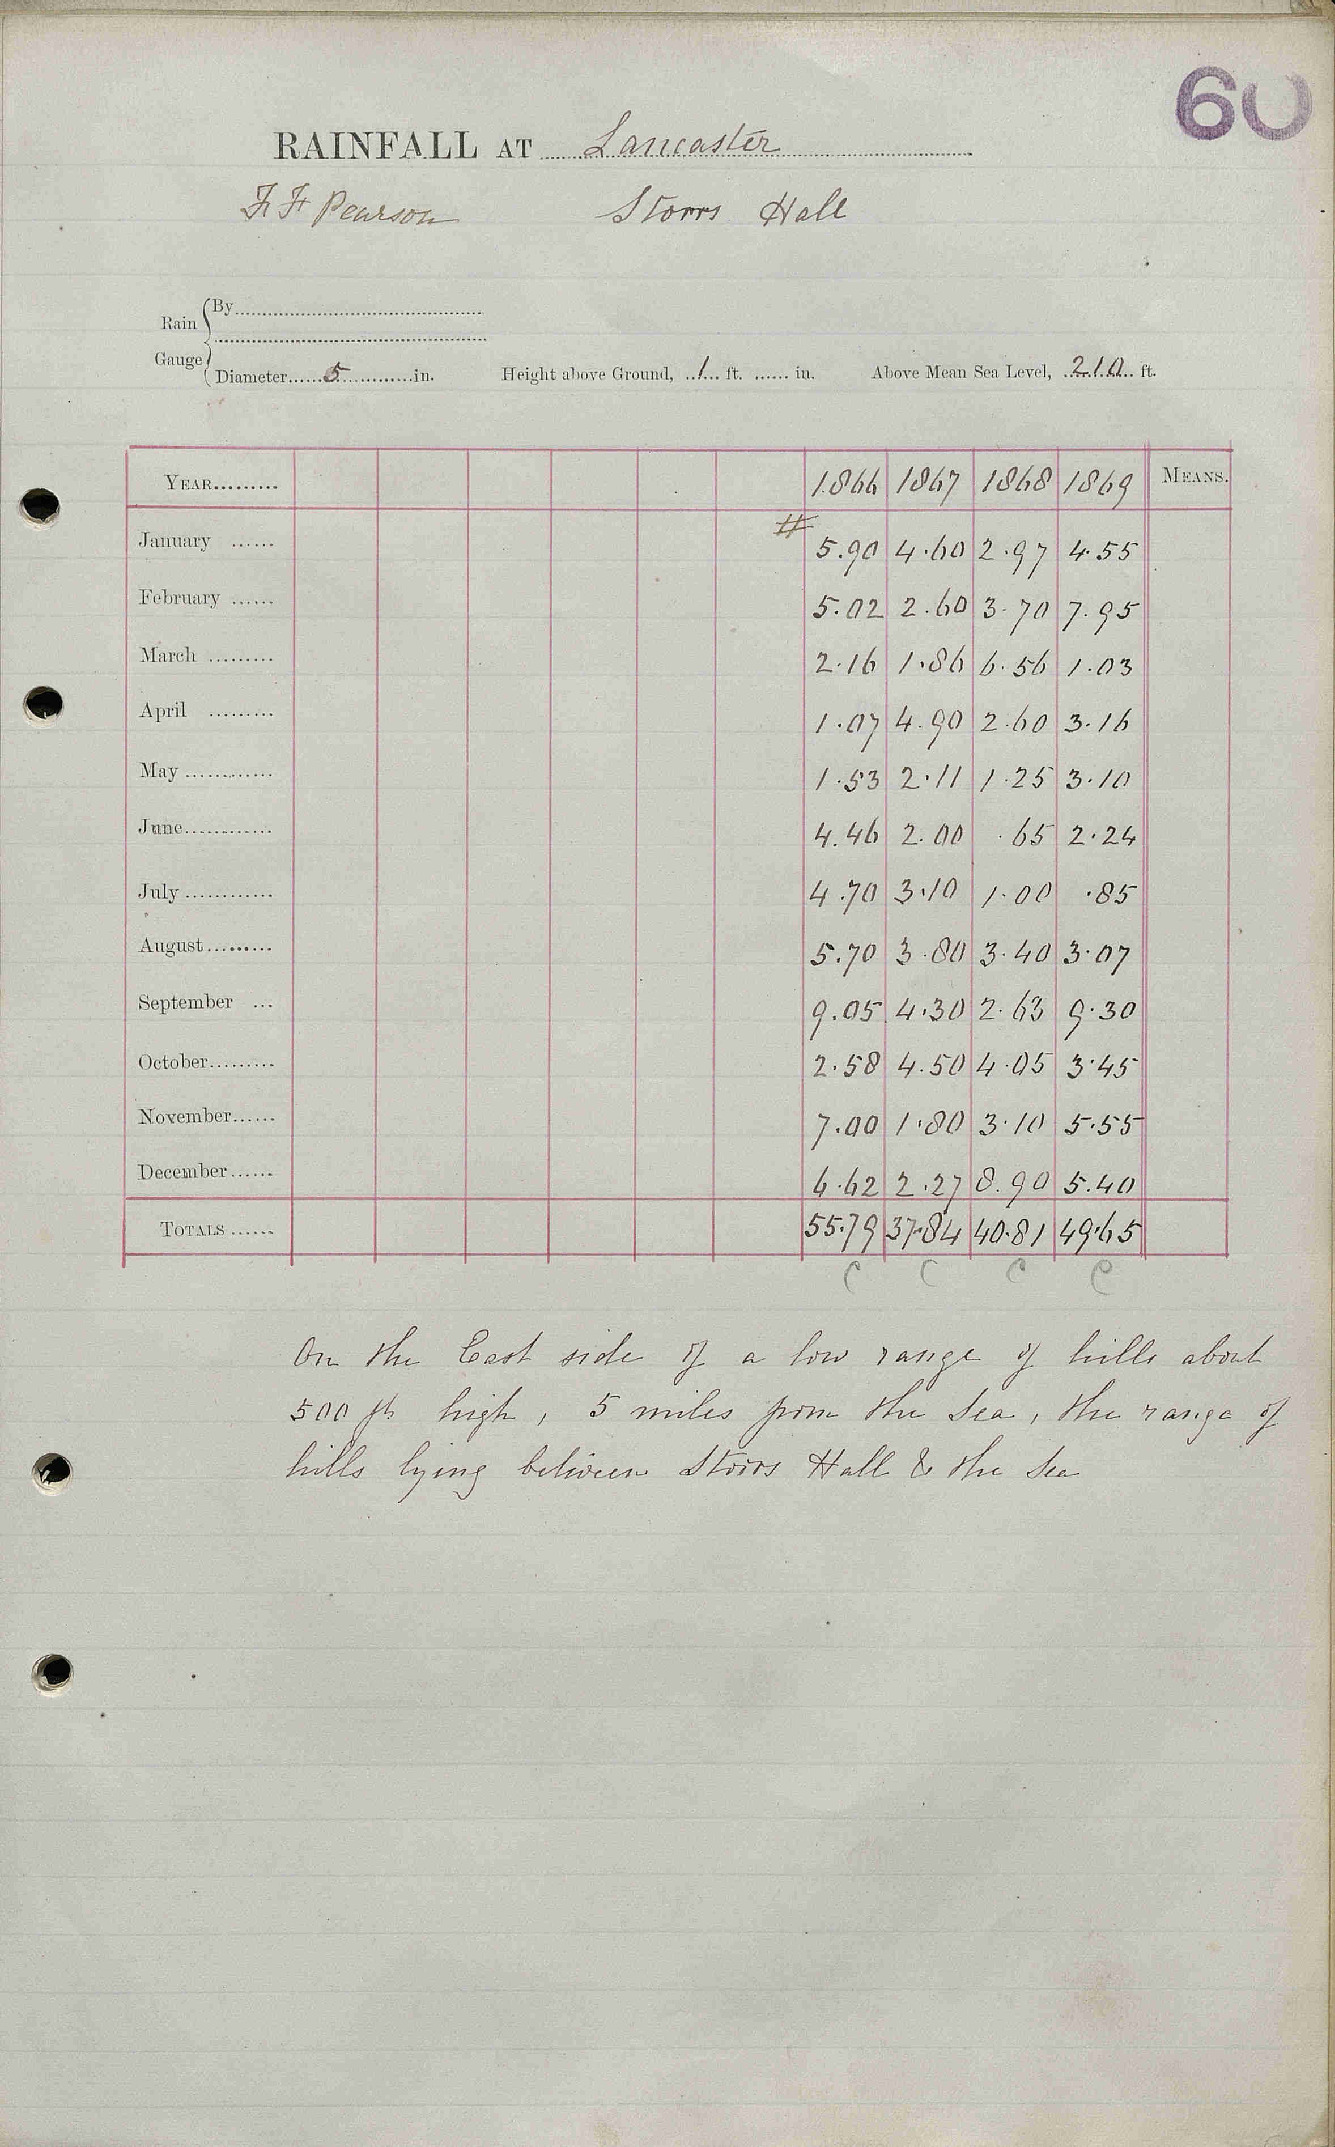 60
RAINFALL AT Lancaster
F F Pearson Storrs Hall
Rain Gauge
By
Diameter 5 in. Height above Ground, 1 ft. in. Above Mean Sea Level, 210 ft.
YEAR 1866 1867 1868 1869 MEANS.
#
January 5.90 4.60 2.97 4.55
February 5.02 2.60 3.70 7.95
March 2.16 1.86 6.56 1.03
April 1.07 4.90 2.60 3.16
May 1.53 2.11 1.25 3.10
June 4.46 2.00 .65 2.24
July 4.70 3.10 1.00 .85
August 5.70 3.80 3.40 3.07
September 9.05 4.30 2.63 9.30
October 2.58 4.50 4.05 3.45
November 7.00 1.80 3.10 5.55
December 6.62 2.27 8.90 5.40
TOTALS 55.79 37.84 40.81 49.65
C C C C
On the East side of a low range of hills about
500 ft high, 5 miles from the Sea, the range of
hills lying between Storrs Hall & the Sea